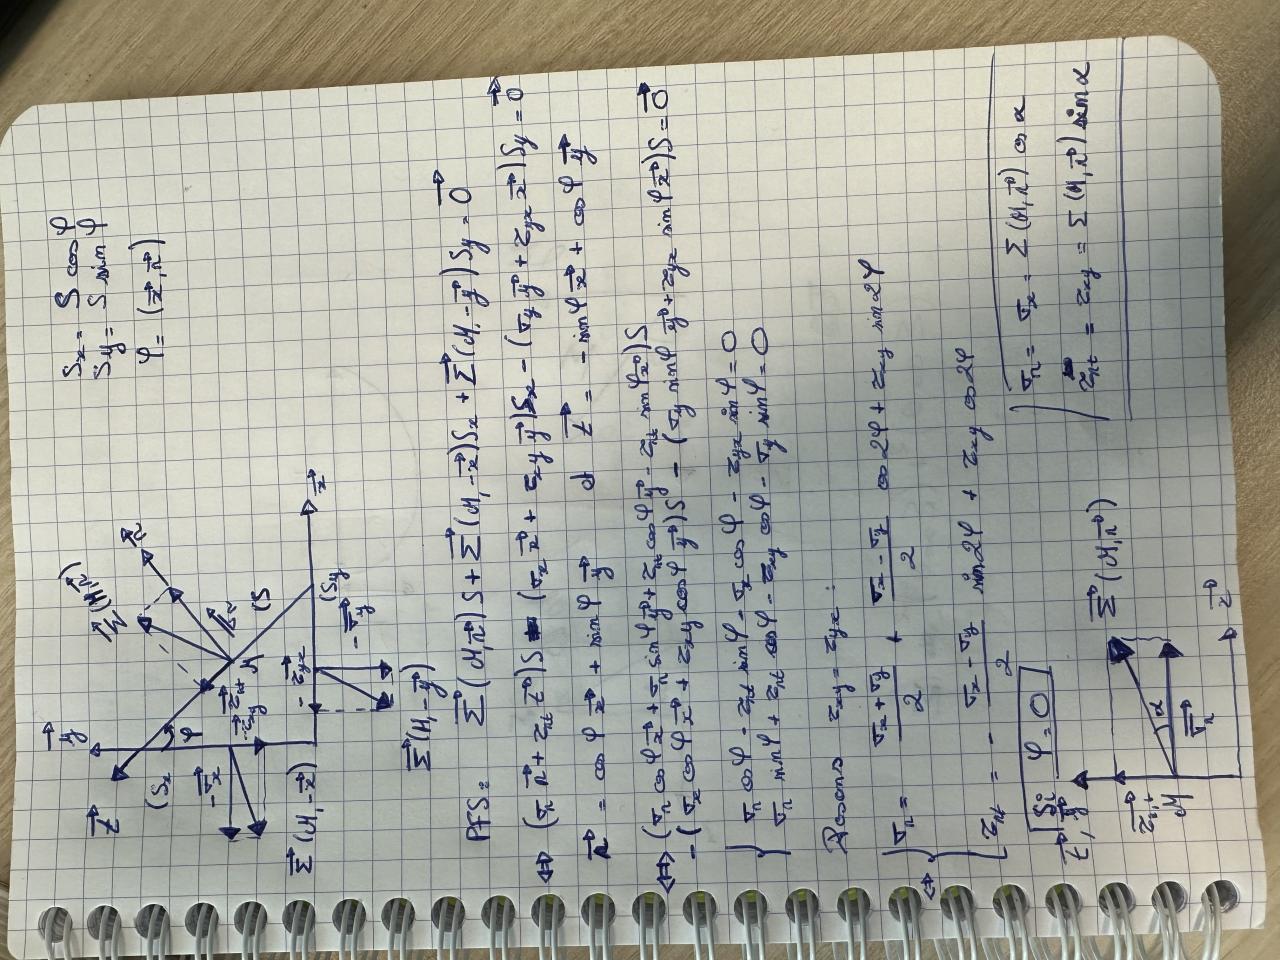 S_x = S cos φ
S_y = S sin φ
φ = (x⃗, n⃗)
t⃗
y⃗
(S_x
φ
-σ⃗_x
-τ⃗_xy
Σ⃗(M, -x⃗)
τ⃗_nt
M
Σ⃗(M, n⃗)
σ⃗_n
n⃗
(S
-τ⃗_yx
(S_y
-σ⃗_y
x⃗
Σ⃗(M, -y⃗)
PFS: Σ⃗(M, n⃗)S + Σ⃗(M, -x⃗)S_x + Σ⃗(M, -y⃗)S_y = 0⃗
⇔ (σ_n n⃗ + τ_nt t⃗)S - (σ_x x⃗ + τ_xy y⃗)S_x - (σ_y y⃗ + τ_yx x⃗)S_y = 0⃗
n⃗ = cos φ x⃗ + sin φ y⃗ t⃗ = -sin φ x⃗ + cos φ y⃗
⇔ (σ_n cos φ x⃗ + σ_n sin φ y⃗ + τ_nt cos φ y⃗ - τ_nt sin φ x⃗)S
- (σ_x cos φ x⃗ + τ_xy cos φ y⃗)S - (σ_y sin φ y⃗ + τ_yx sin φ x⃗)S = 0⃗
σ_n cos φ - τ_nt sin φ - σ_x cos φ - τ_yx sin φ = 0
σ_n sin φ + τ_nt cos φ - τ_xy cos φ - σ_y sin φ = 0
Posons τ_xy = τ_yx :
⇔ { σ_n = (σ_x + σ_y)/2 + (σ_x - σ_y)/2 cos 2φ + τ_xy sin 2φ
τ_nt = - (σ_x - σ_y)/2 sin 2φ + τ_xy cos 2φ
Si φ = 0
t⃗, y⃗
τ⃗_nt
M
α
σ⃗_n
Σ⃗(M, n⃗)
σ_n = σ_x = Σ(M, n⃗) cos α
τ_nt = τ_xy = Σ(M, n⃗) sin α